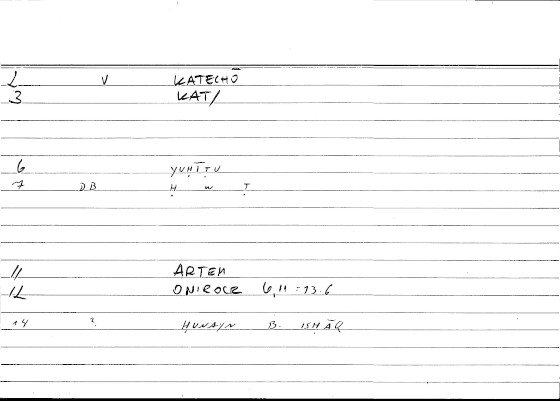 2 V KATECHŌ
3 KAT/
6 YUḤĪṬU
7 DB Ḥ W Ṭ
11 ARTEM
12 ONIROCR 6,11 = 13.6
14 2 ḤUNAYN B. ISḤĀQ